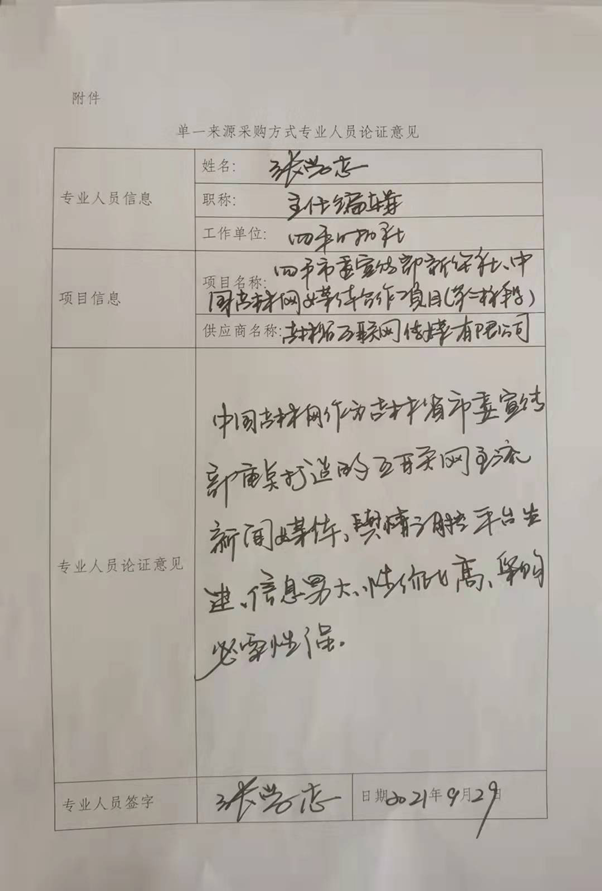 附件
单一来源采购方式专业人员论证意见
专业人员信息
姓名: 张学志
职称: 主任编辑
工作单位: 四平日报社
项目信息
项目名称: 四平市委宣传部新华社、中
国吉林网媒体合作项目(第二标段)
供应商名称: 吉林省互联网传媒有限公司
专业人员论证意见
中国吉林网作为吉林省市委宣传
部重点打造的互联网主流
新闻媒体、舆情 平台
信息 大、性价比高、采购
必要性强.
专业人员签字
张学志
日期 2021年9月29日